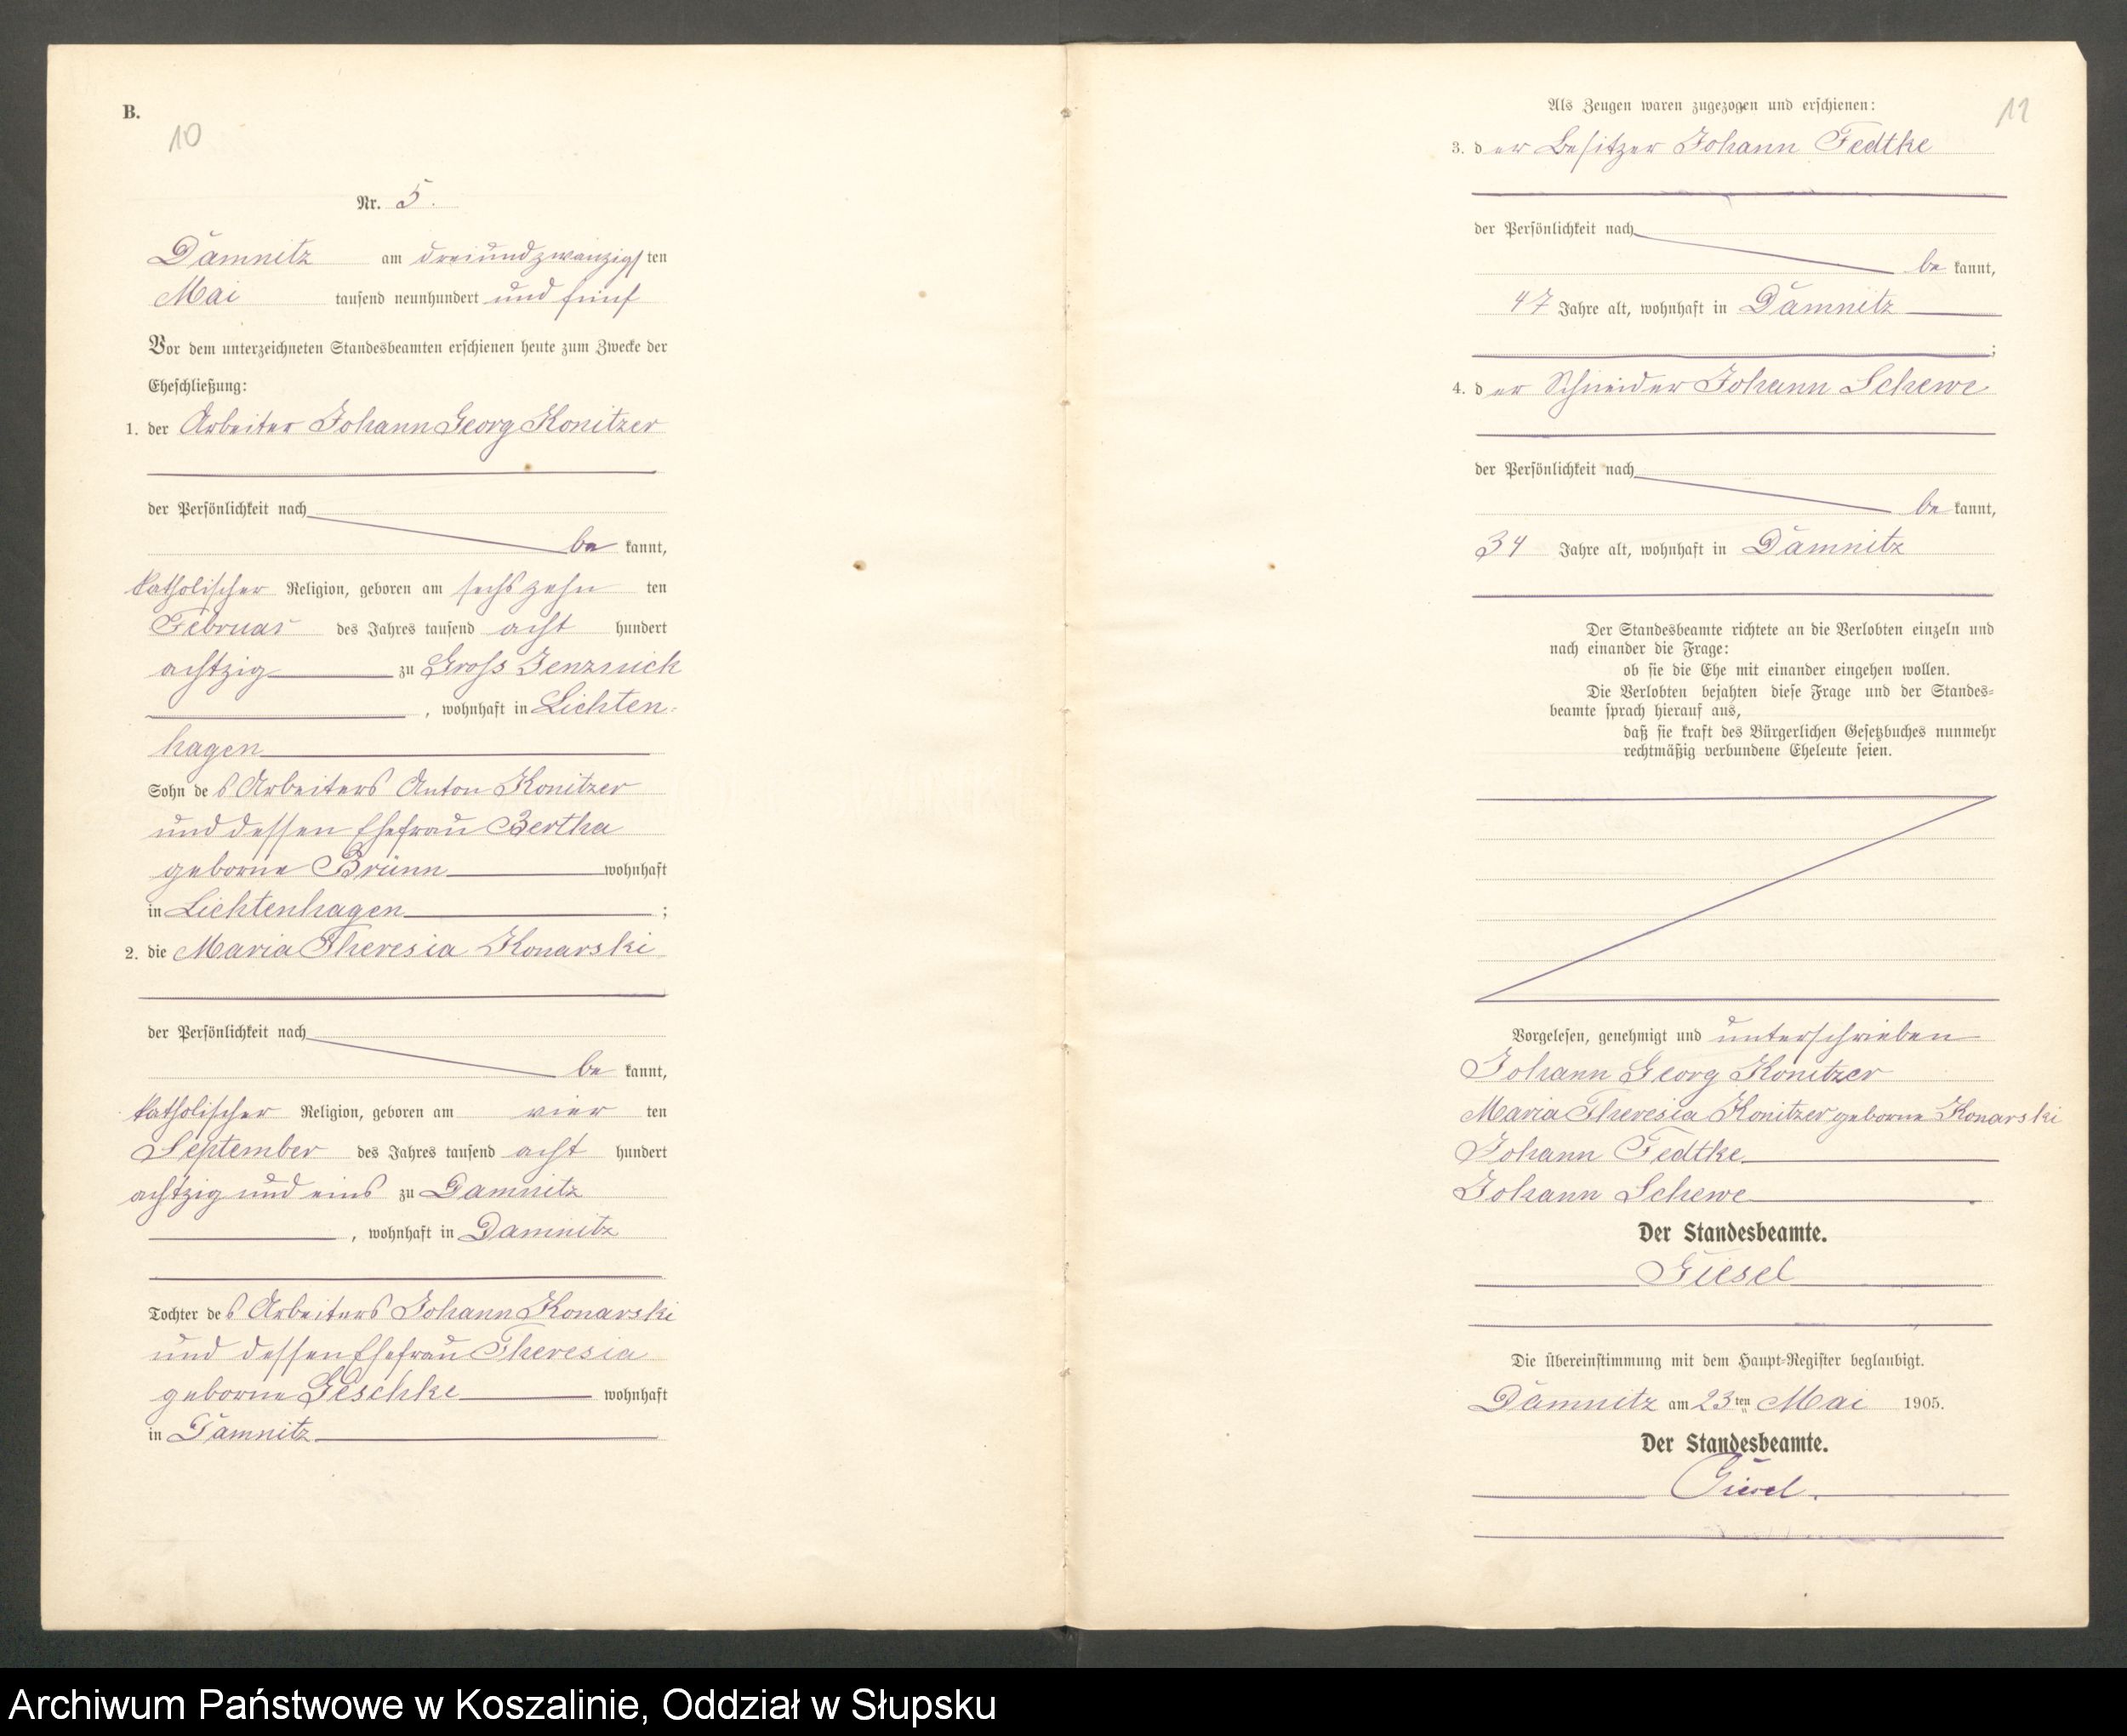 B.
10
Nr. 5.
Damnitz am dreiundzwanzigsten
Mai tausend neunhundert und fünf
Vor dem unterzeichneten Standesbeamten erschienen heute zum Zwecke der
Eheschließung:
1. der Arbeiter Johann Georg Konitzer
der Persönlichkeit nach
be kannt,
katholischer Religion, geboren am sechszehn ten
Februar des Jahres tausend acht hundert
achtzig zu Gross Jenznick
, wohnhaft in Lichten-
hagen
Sohn des Arbeiters Anton Konitzer
und dessen Ehefrau Bertha
geborne Brünn wohnhaft
in Lichtenhagen ;
2. die Maria Theresia Konarski
der Persönlichkeit nach
be kannt,
katholischer Religion, geboren am vier ten
September des Jahres tausend acht hundert
achtzig und eins zu Damnitz
, wohnhaft in Damnitz
Tochter des Arbeiters Johann Konarski
und dessen Ehefrau Theresia
geborne Geschke wohnhaft
in Damnitz
Als Zeugen waren zugezogen und erschienen:
11
3. der Besitzer Johann Fedtke
der Persönlichkeit nach
be kannt,
47 Jahre alt, wohnhaft in Damnitz
;
4. der Schneider Johann Schewe
der Persönlichkeit nach
be kannt,
34 Jahre alt, wohnhaft in Damnitz
Der Standesbeamte richtete an die Verlobten einzeln und
nach einander die Frage:
ob sie die Ehe mit einander eingehen wollen.
Die Verlobten bejahten diese Frage und der Standes-
beamte sprach hierauf aus,
daß sie kraft des Bürgerlichen Gesetzbuches nunmehr
rechtmäßig verbundene Eheleute seien.
Vorgelesen, genehmigt und unterschrieben
Johann Georg Konitzer
Maria Theresia Konitzer geborne Konarski
Johann Fedtke
Johann Schewe
Der Standesbeamte.
Giesel
Die Übereinstimmung mit dem Haupt-Register beglaubigt.
Damnitz am 23ten Mai 1905.
Der Standesbeamte.
Giesel.
Archiwum Państwowe w Koszalinie, Oddział w Słupsku